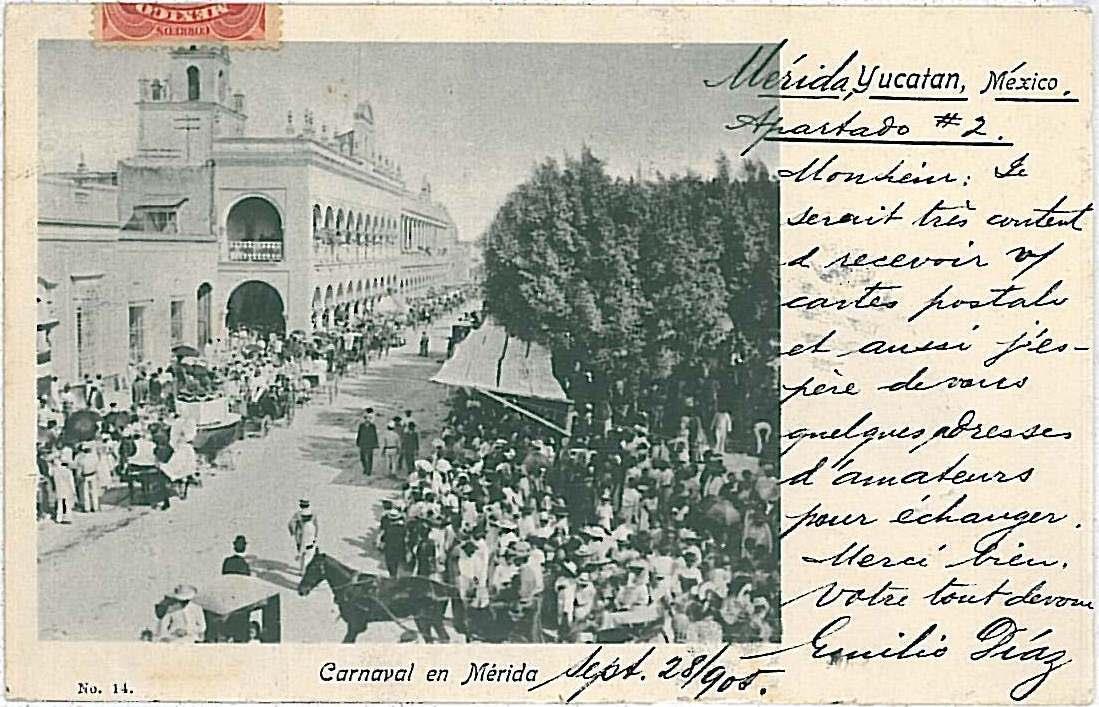 MEXICO
CORREOS
Mérida, Yucatan, México.
Apartado #2.
Monsieur: Je
serait très content
d recevoir v/
cartes postale
et aussi j'es-
père de vous
quelques adresses
d'amateurs
pour échanger.
Merci bien.
Votre tout devoué
Emilio Díaz
Carnaval en Mérida
Sept. 28/905.
No. 14.